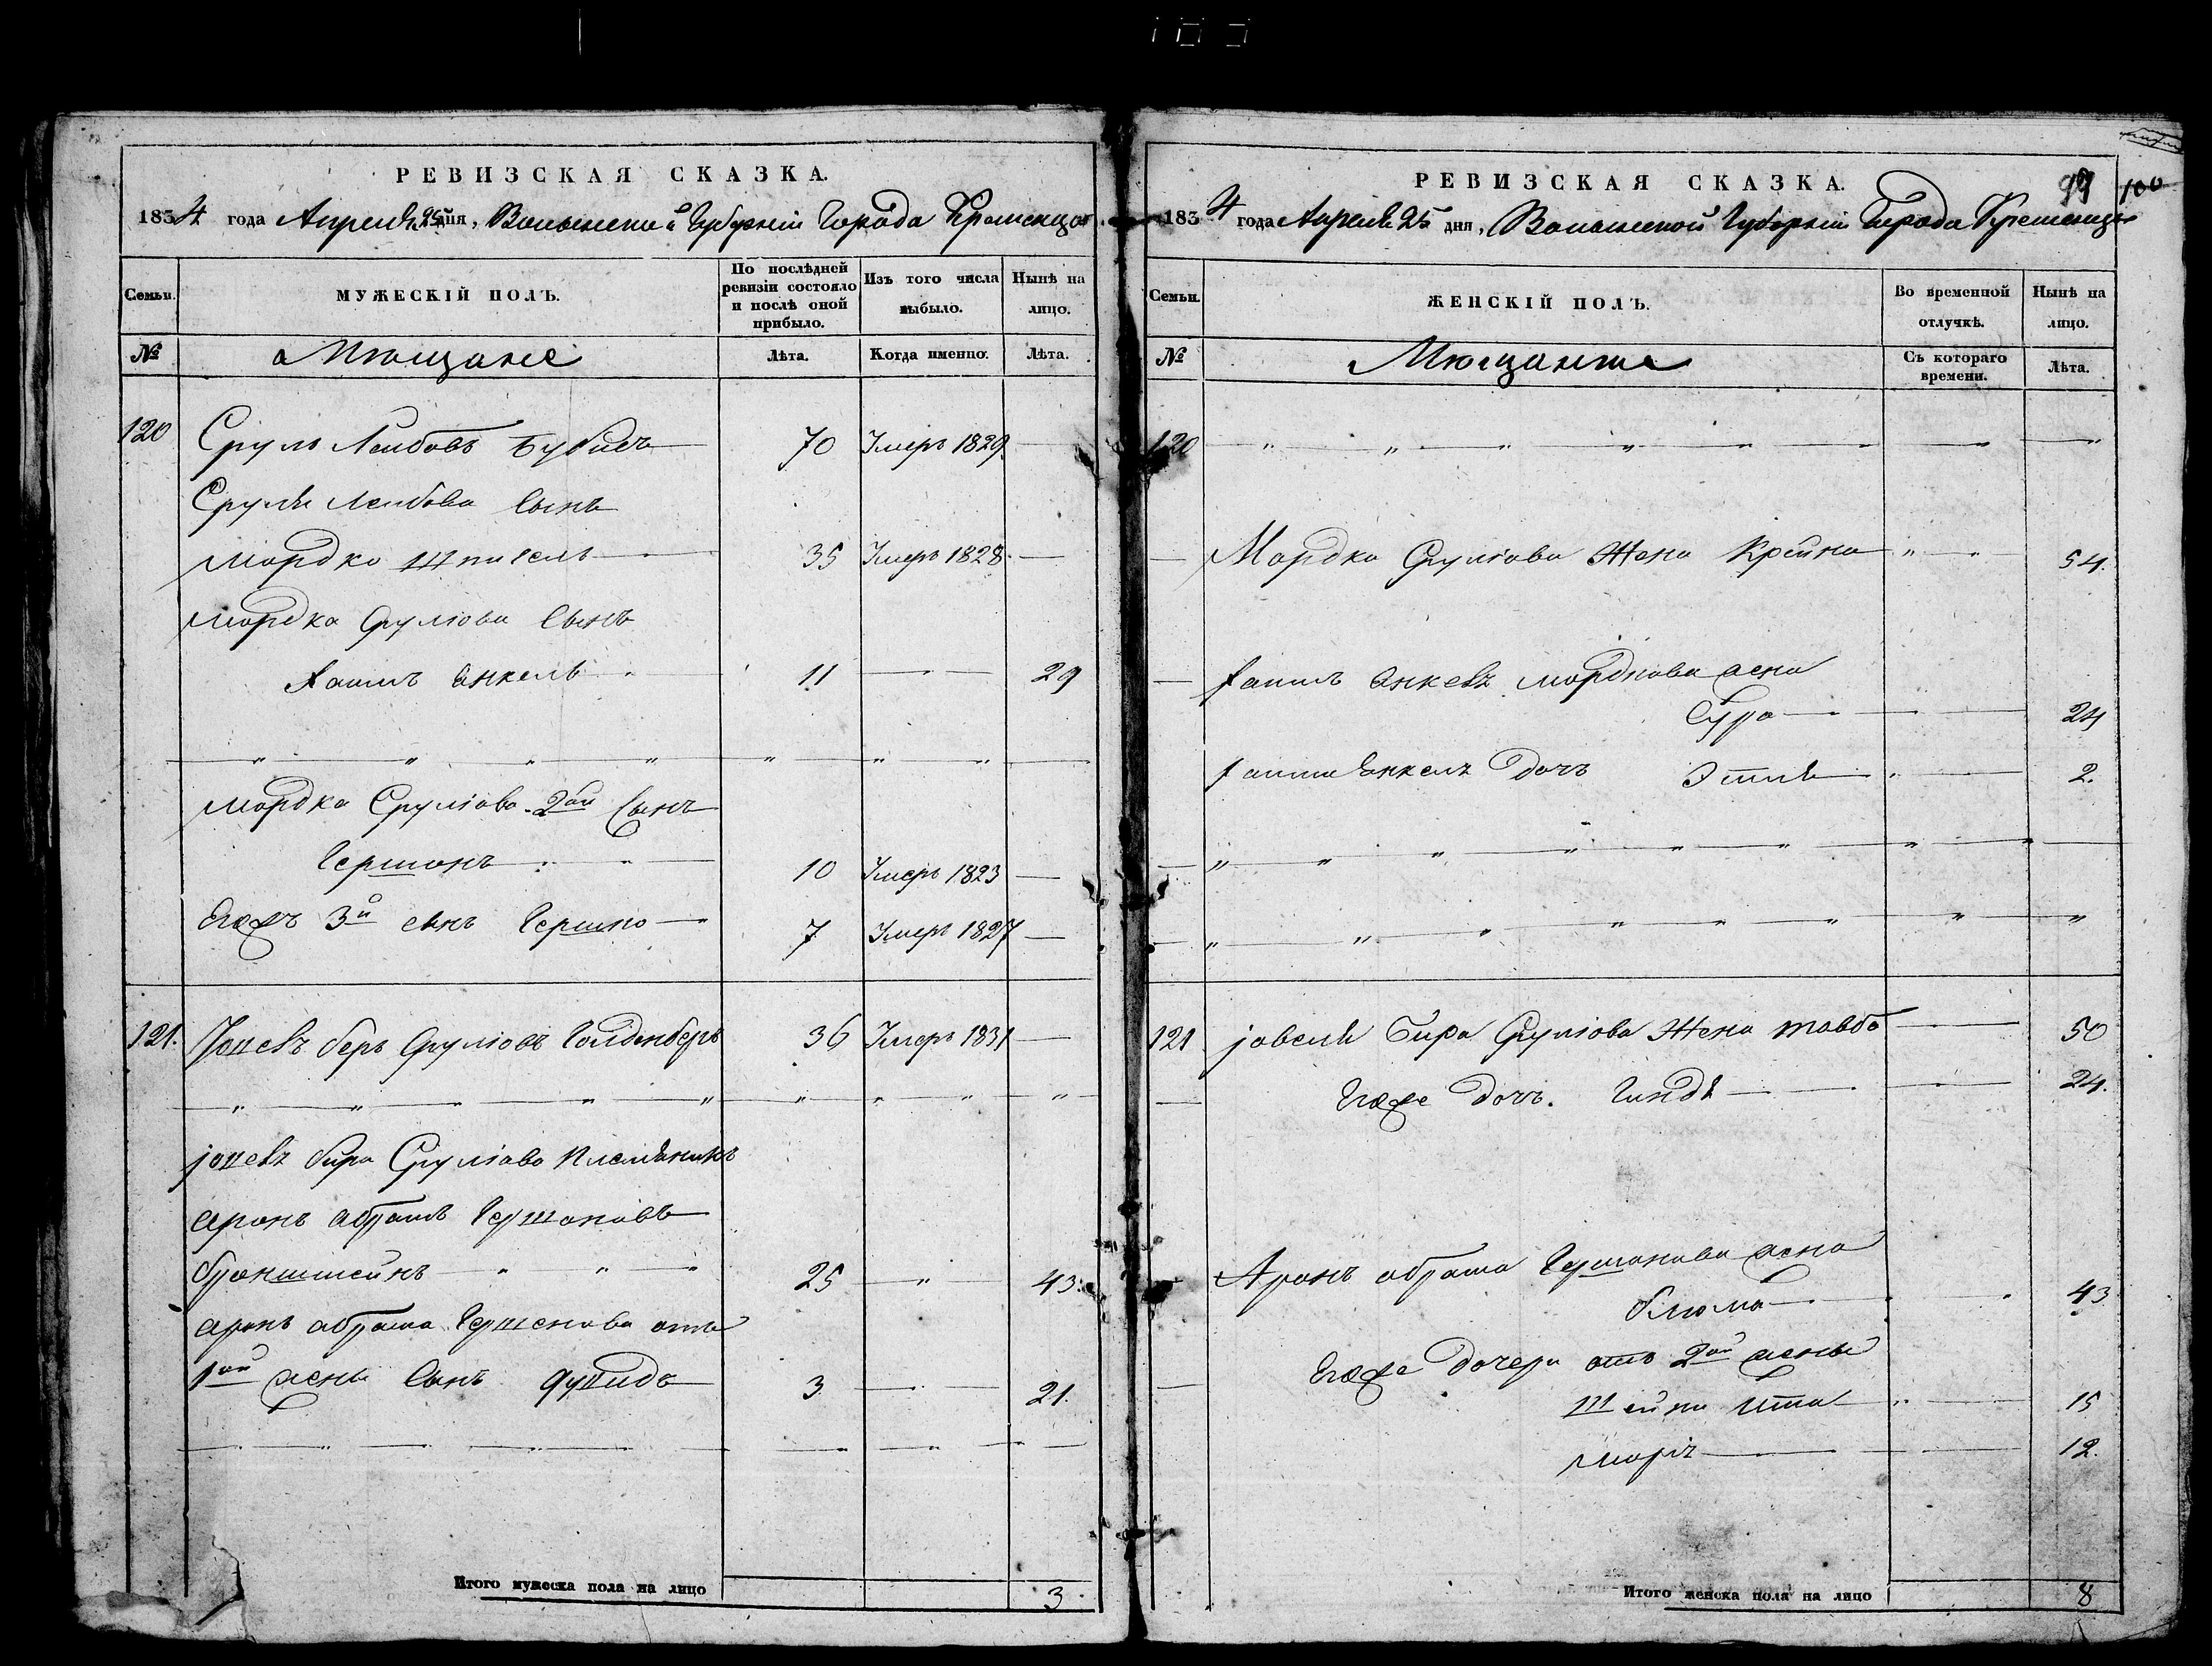 РЕВИЗСКАЯ СКАЗКА.
1834 года Апреля 25 дня, Волынской Губернии Города Кременца
Семьи.
МУЖЕСКІЙ ПОЛЪ.
По послѣдней ревизіи состояло и послѣ оной прибыло.
Изъ того числа выбыло.
Нынѣ на лицо.
№
Мѣщане
Лѣта.
Когда именно.
Лѣта.
120 Сруль Лейбовъ 70 Умеръ 1829 —
Сруля Лейбова Сынъ
Мордко 35 Умеръ 1828 —
Мордка Срулiова Сынъ
11 — 29
Мордка Срулiова 2ой Сынъ
Гершонъ 10 Умеръ 1823 —
Егожъ 3й сынъ Гершко 7 Умеръ 1827 —
121. беръ Срулiовъ Голденберъ 36 Умеръ 1831 —
бера Срулiова племѣникъ
аронъ абрамъ Гершоновъ
бронштейнъ 25 " 43.
аронъ абрама Гершонова отъ
1ой жены Сынъ 3 — 21.
Итого мужеска пола на лицо 3
РЕВИЗСКАЯ СКАЗКА.
99 100
1834 года Апреля 25 дня, Волынской Губернии Города Кременца
Семьи.
ЖЕНСКІЙ ПОЛЪ.
Во временной отлучкѣ.
Нынѣ на лицо.
№
Мѣщанки
Съ котораго времени.
Лѣта.
120
Мордка Срулiова Жена Крейна 54.
мордкова жена
Сура 24
Дочъ Этля 2.
121 Бира Срулiова Жена 50
Егоже Дочъ. Гиндя 24.
Аронъ абрама Гершонова жена
блюма 43
Егоже Дочери отъ 2ой жены
шейна ита 15
12.
Итого женска пола на лицо 8